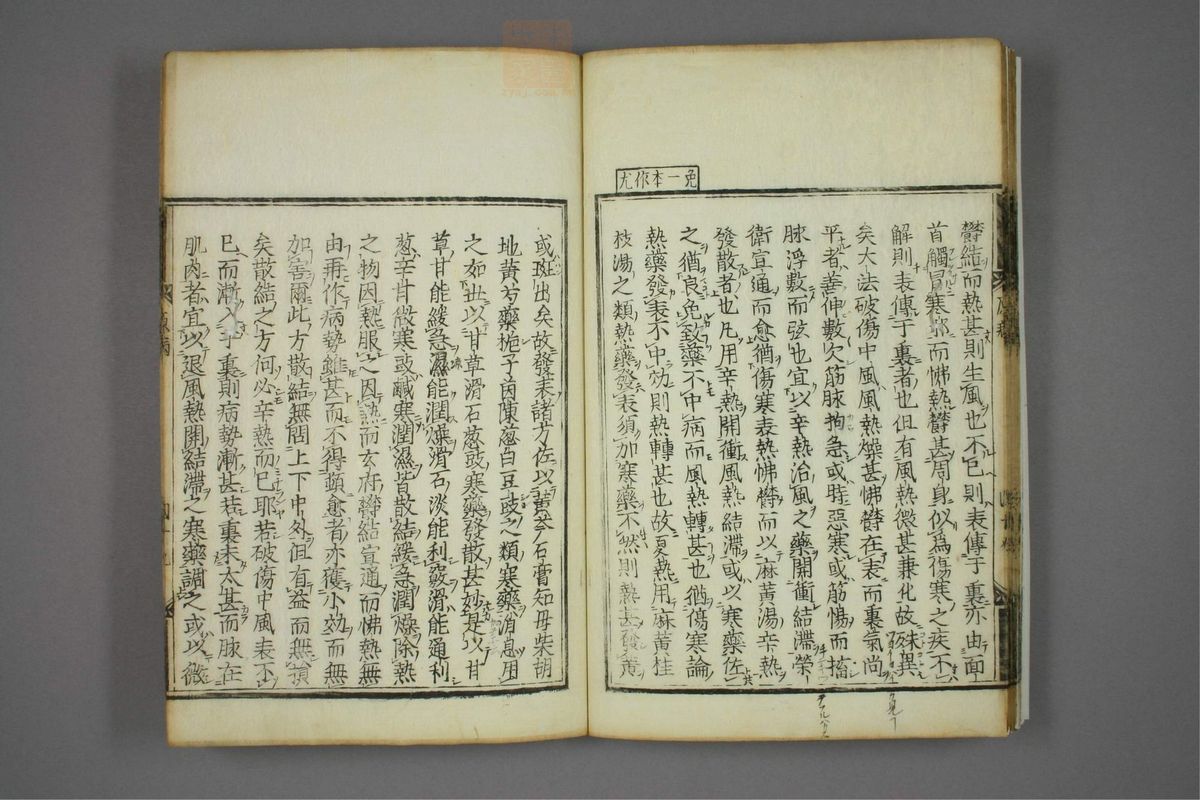 免一本作尤
鬱結而熱甚則生風也不已則表傳于裏亦由面
首觸冒寒邪而怫熱鬱甚周身似爲傷寒之疾不
解則表傳于裏者也但有風熱微甚兼化故殊異
矣大法破傷中風風熱燥甚怫鬱在表而裏氣尚
平者善伸數欠筋脉拘急或時惡寒或筋惕而搐
脉浮數而弦也宜以辛熱治風之藥開衝結滯榮
衛宣通而愈猶傷寒表熱怫鬱而以麻黃湯辛熱
發散者也凡用辛熱開衝風熱結滯或以寒藥佐
之猶良免致藥不中病而風熱轉甚也猶傷寒論
熱藥發表不中効則熱轉甚也故夏熱用麻黃桂
枝湯之類熱藥發表須加寒藥不然則熱甚發黃
或斑出矣故發表諸方佐以黃芩石膏知母柴胡
地黃芍藥梔子茵陳葱白豆豉之類寒藥消息用
之如世以甘草滑石葱豉寒藥發散甚妙是以甘
草甘能緩急濕能潤燥滑石淡能利竅滑能通利
葱辛甘微寒豉鹹寒潤濕皆散結緩急潤燥除熱
之物因熱服之因熱而玄府鬱結宣通而怫熱無
由再作病勢雖甚而不得頓愈者亦獲小効而無
加害爾此方散結無問上下中外但有益而無損
矣散結之方何必辛熱而已耶若破傷中風表不
已而漸入于裏則病勢漸甚若裏未太甚而脉在
肌肉者宜以退風熱開結滯之寒藥調之或以微